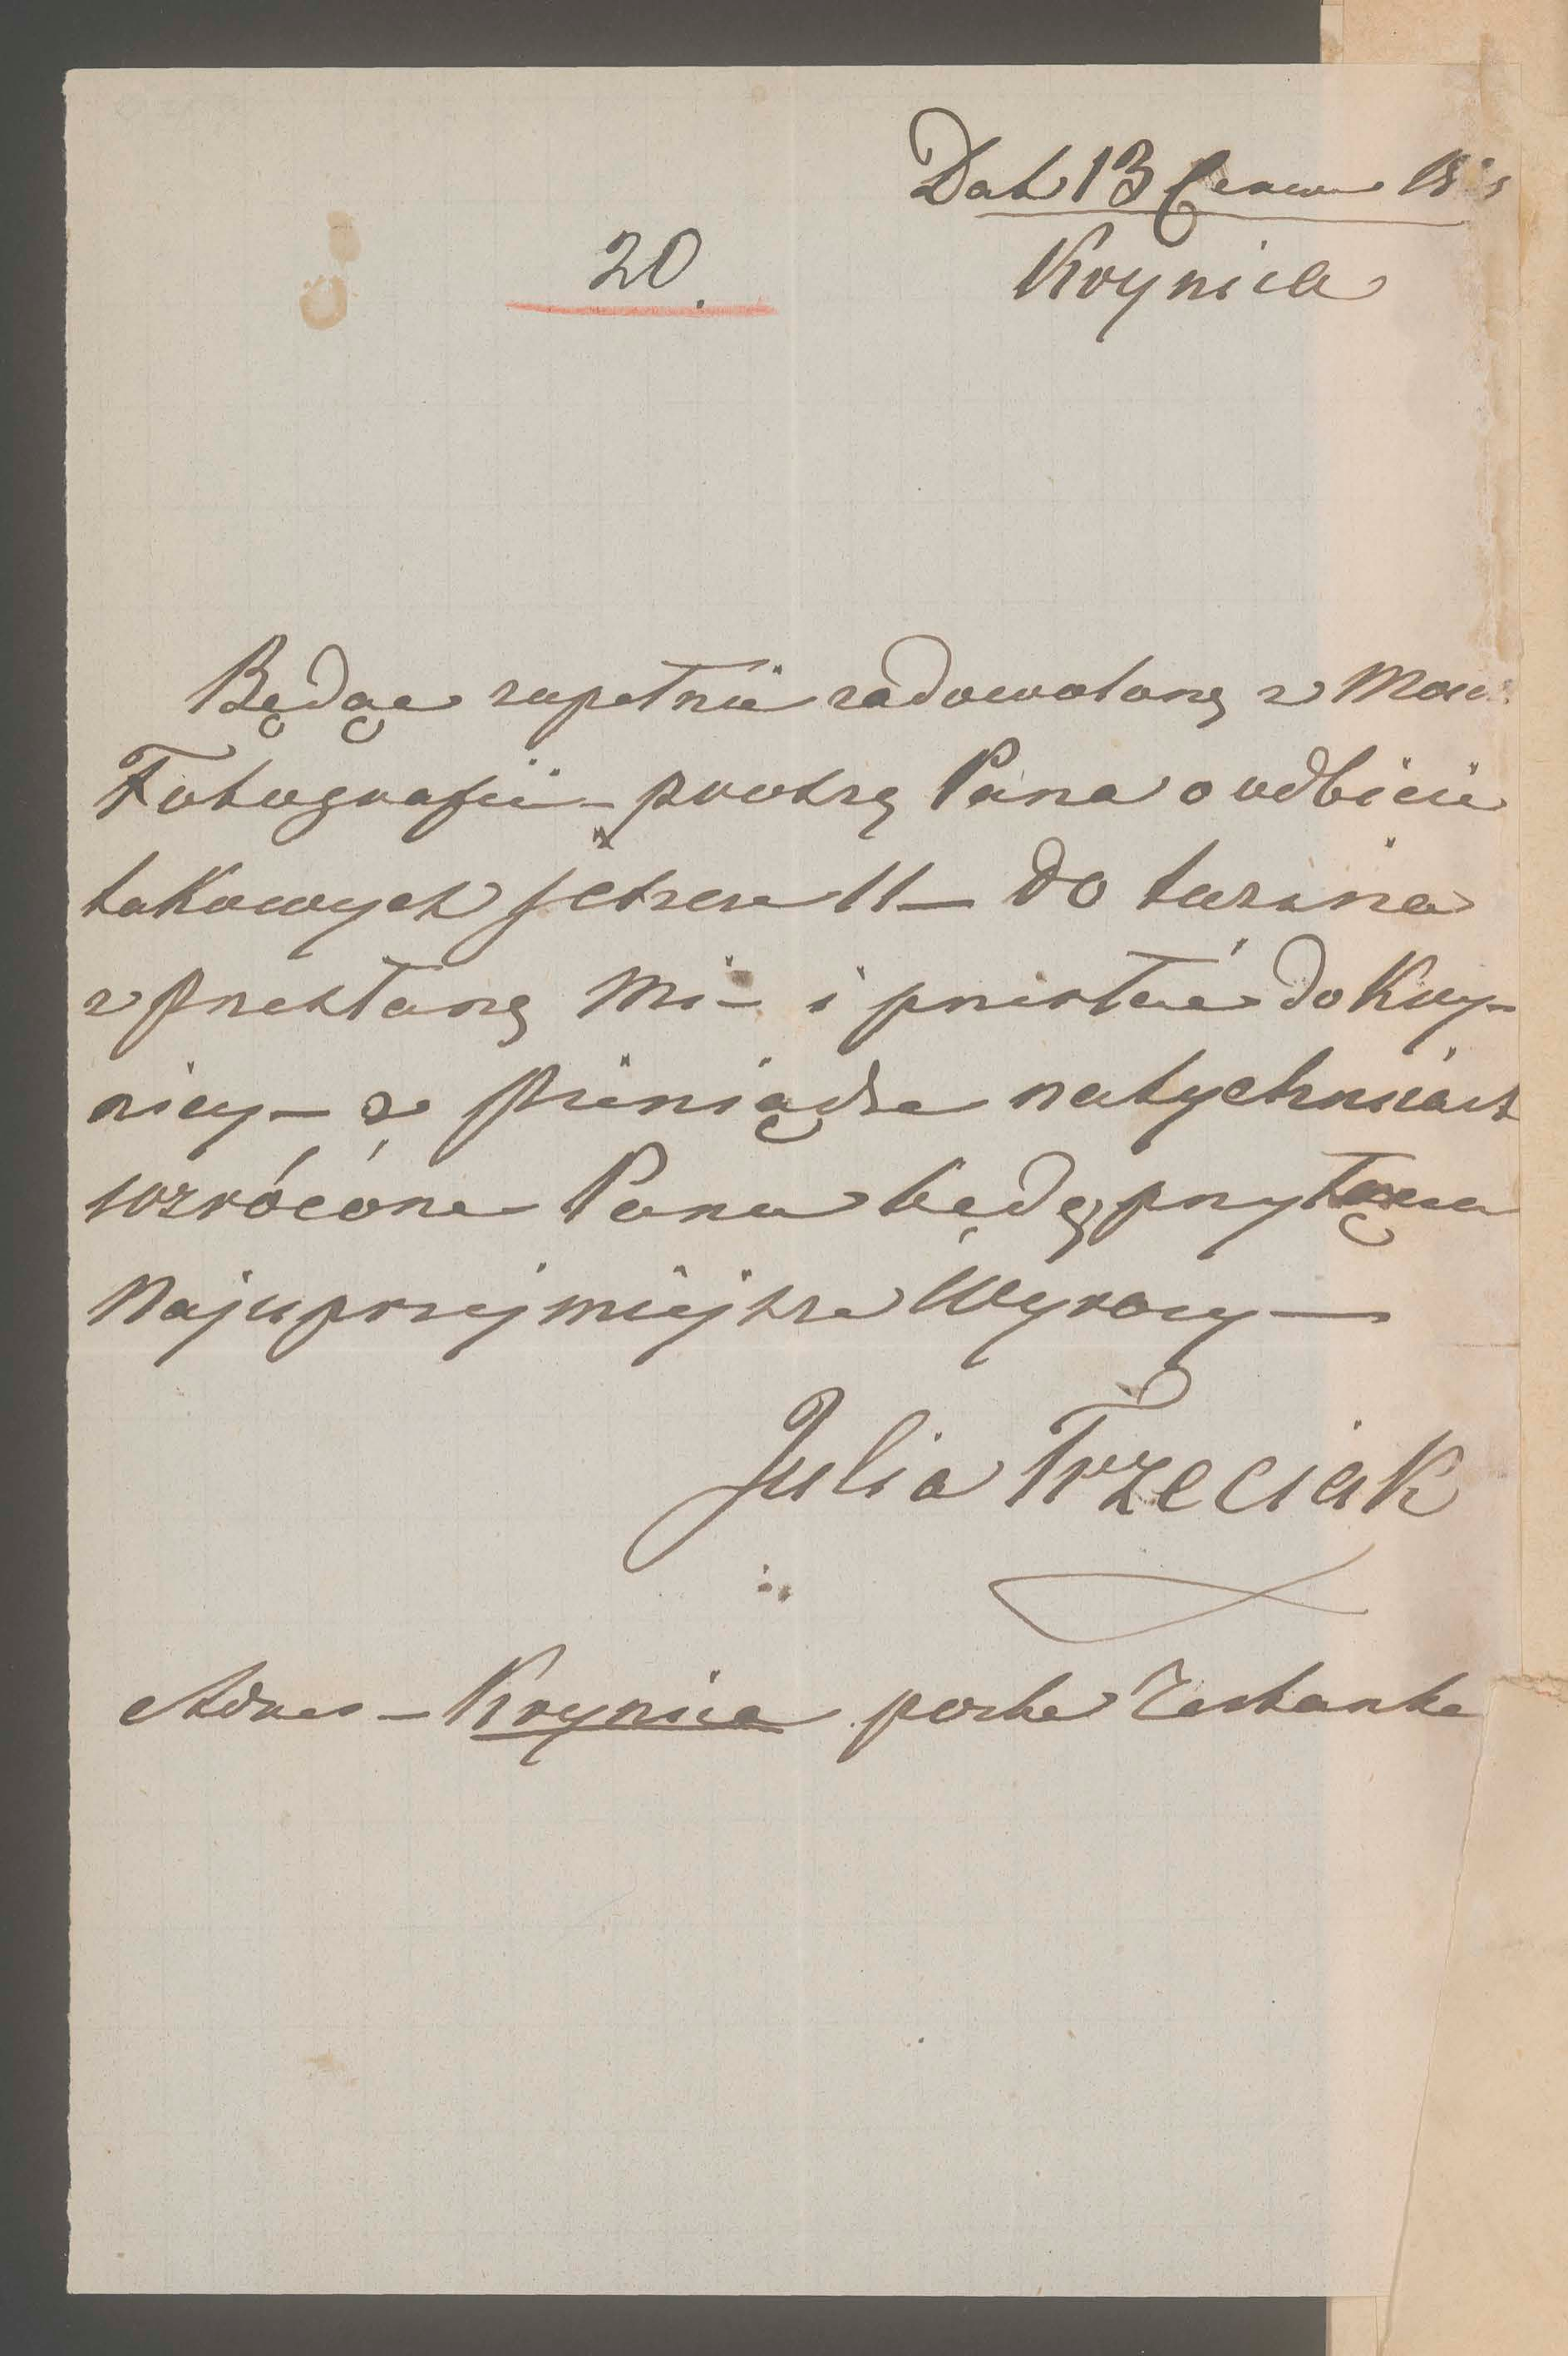 Dat 13 Czerw
20.
Krynica
Będąc zupełnie zadowoloną z
Fotografii – proszę Pana o odbicie
takowych jeszcze 11 – do tuzina
z przesłaną mi – i przesłać do Kry-
nicy – a pieniądze natychmiast
wzrócone Panu będą, przyłącza
Najuprzejmiejsze Wyrazy —
Julia Trzeciak
Adres – Krynica poste Restante